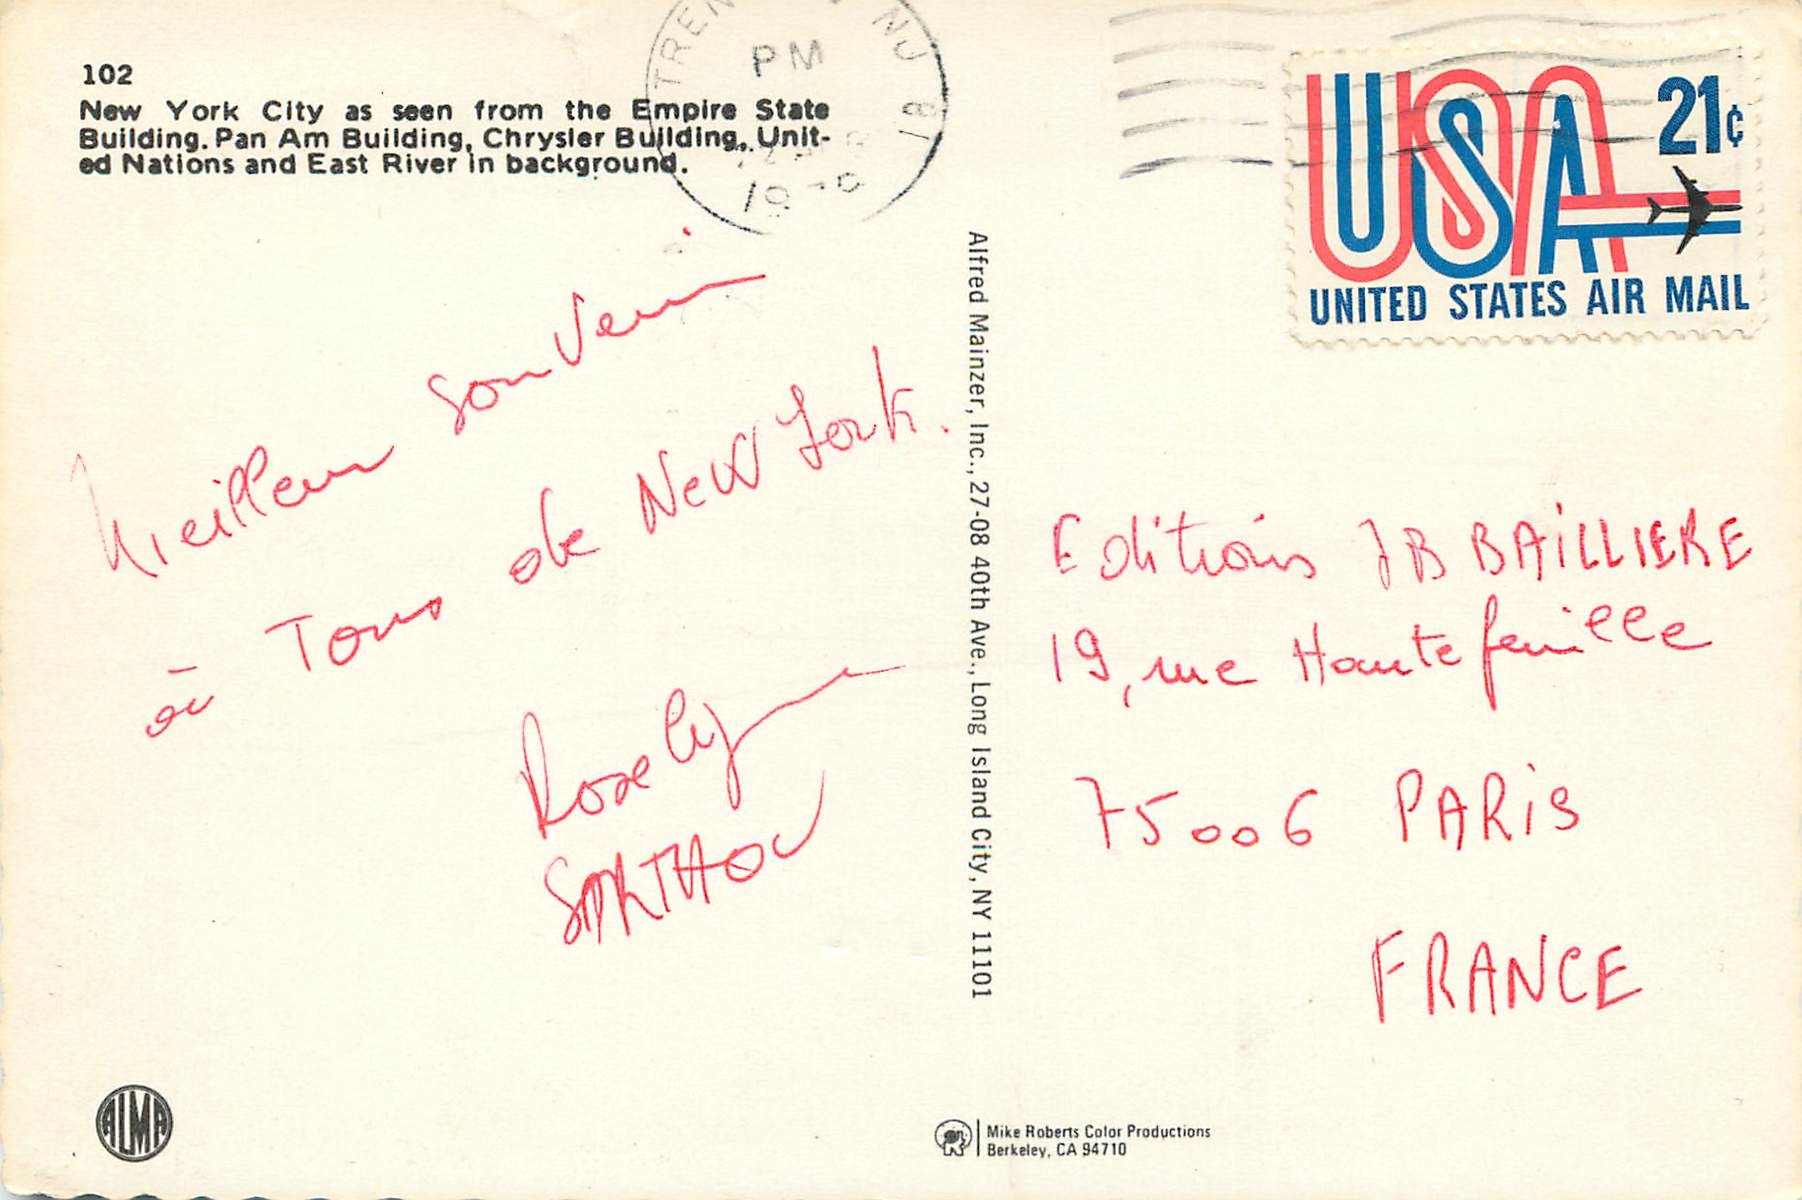 102
New York City as seen from the Empire State
Building. Pan Am Building, Chrysler Building, Unit-
ed Nations and East River in background.
PM
NJ
USA 21¢
UNITED STATES AIR MAIL
Meilleur souvenir
à Tous de New York.
Roselyne
SARTHOU
Alfred Mainzer, Inc., 27-08 40th Ave., Long Island City, NY 11101
Editions JB BAILLIERE
19, rue Hautefeuille
75006 PARIS
FRANCE
ALMA
Mike Roberts Color Productions
Berkeley, CA 94710